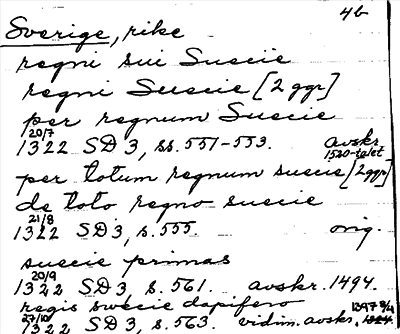 4b
Sverige, rike
regni sui Suecie
regni Suecie [2 ggr]
per regnum Suecie
20/7
1322 SD 3, ss. 551-553. avskr.
1520-talet
per totum regnum suecie [2 ggr]
de toto regno suecie
21/8
1322 SD 3, s. 555. orig.
suecie primas
20/9
1322 SD 3, s. 561. avskr. 1494.
regis swecie dapifero
27/10
1322 SD 3, s. 563. vidim. avskr.